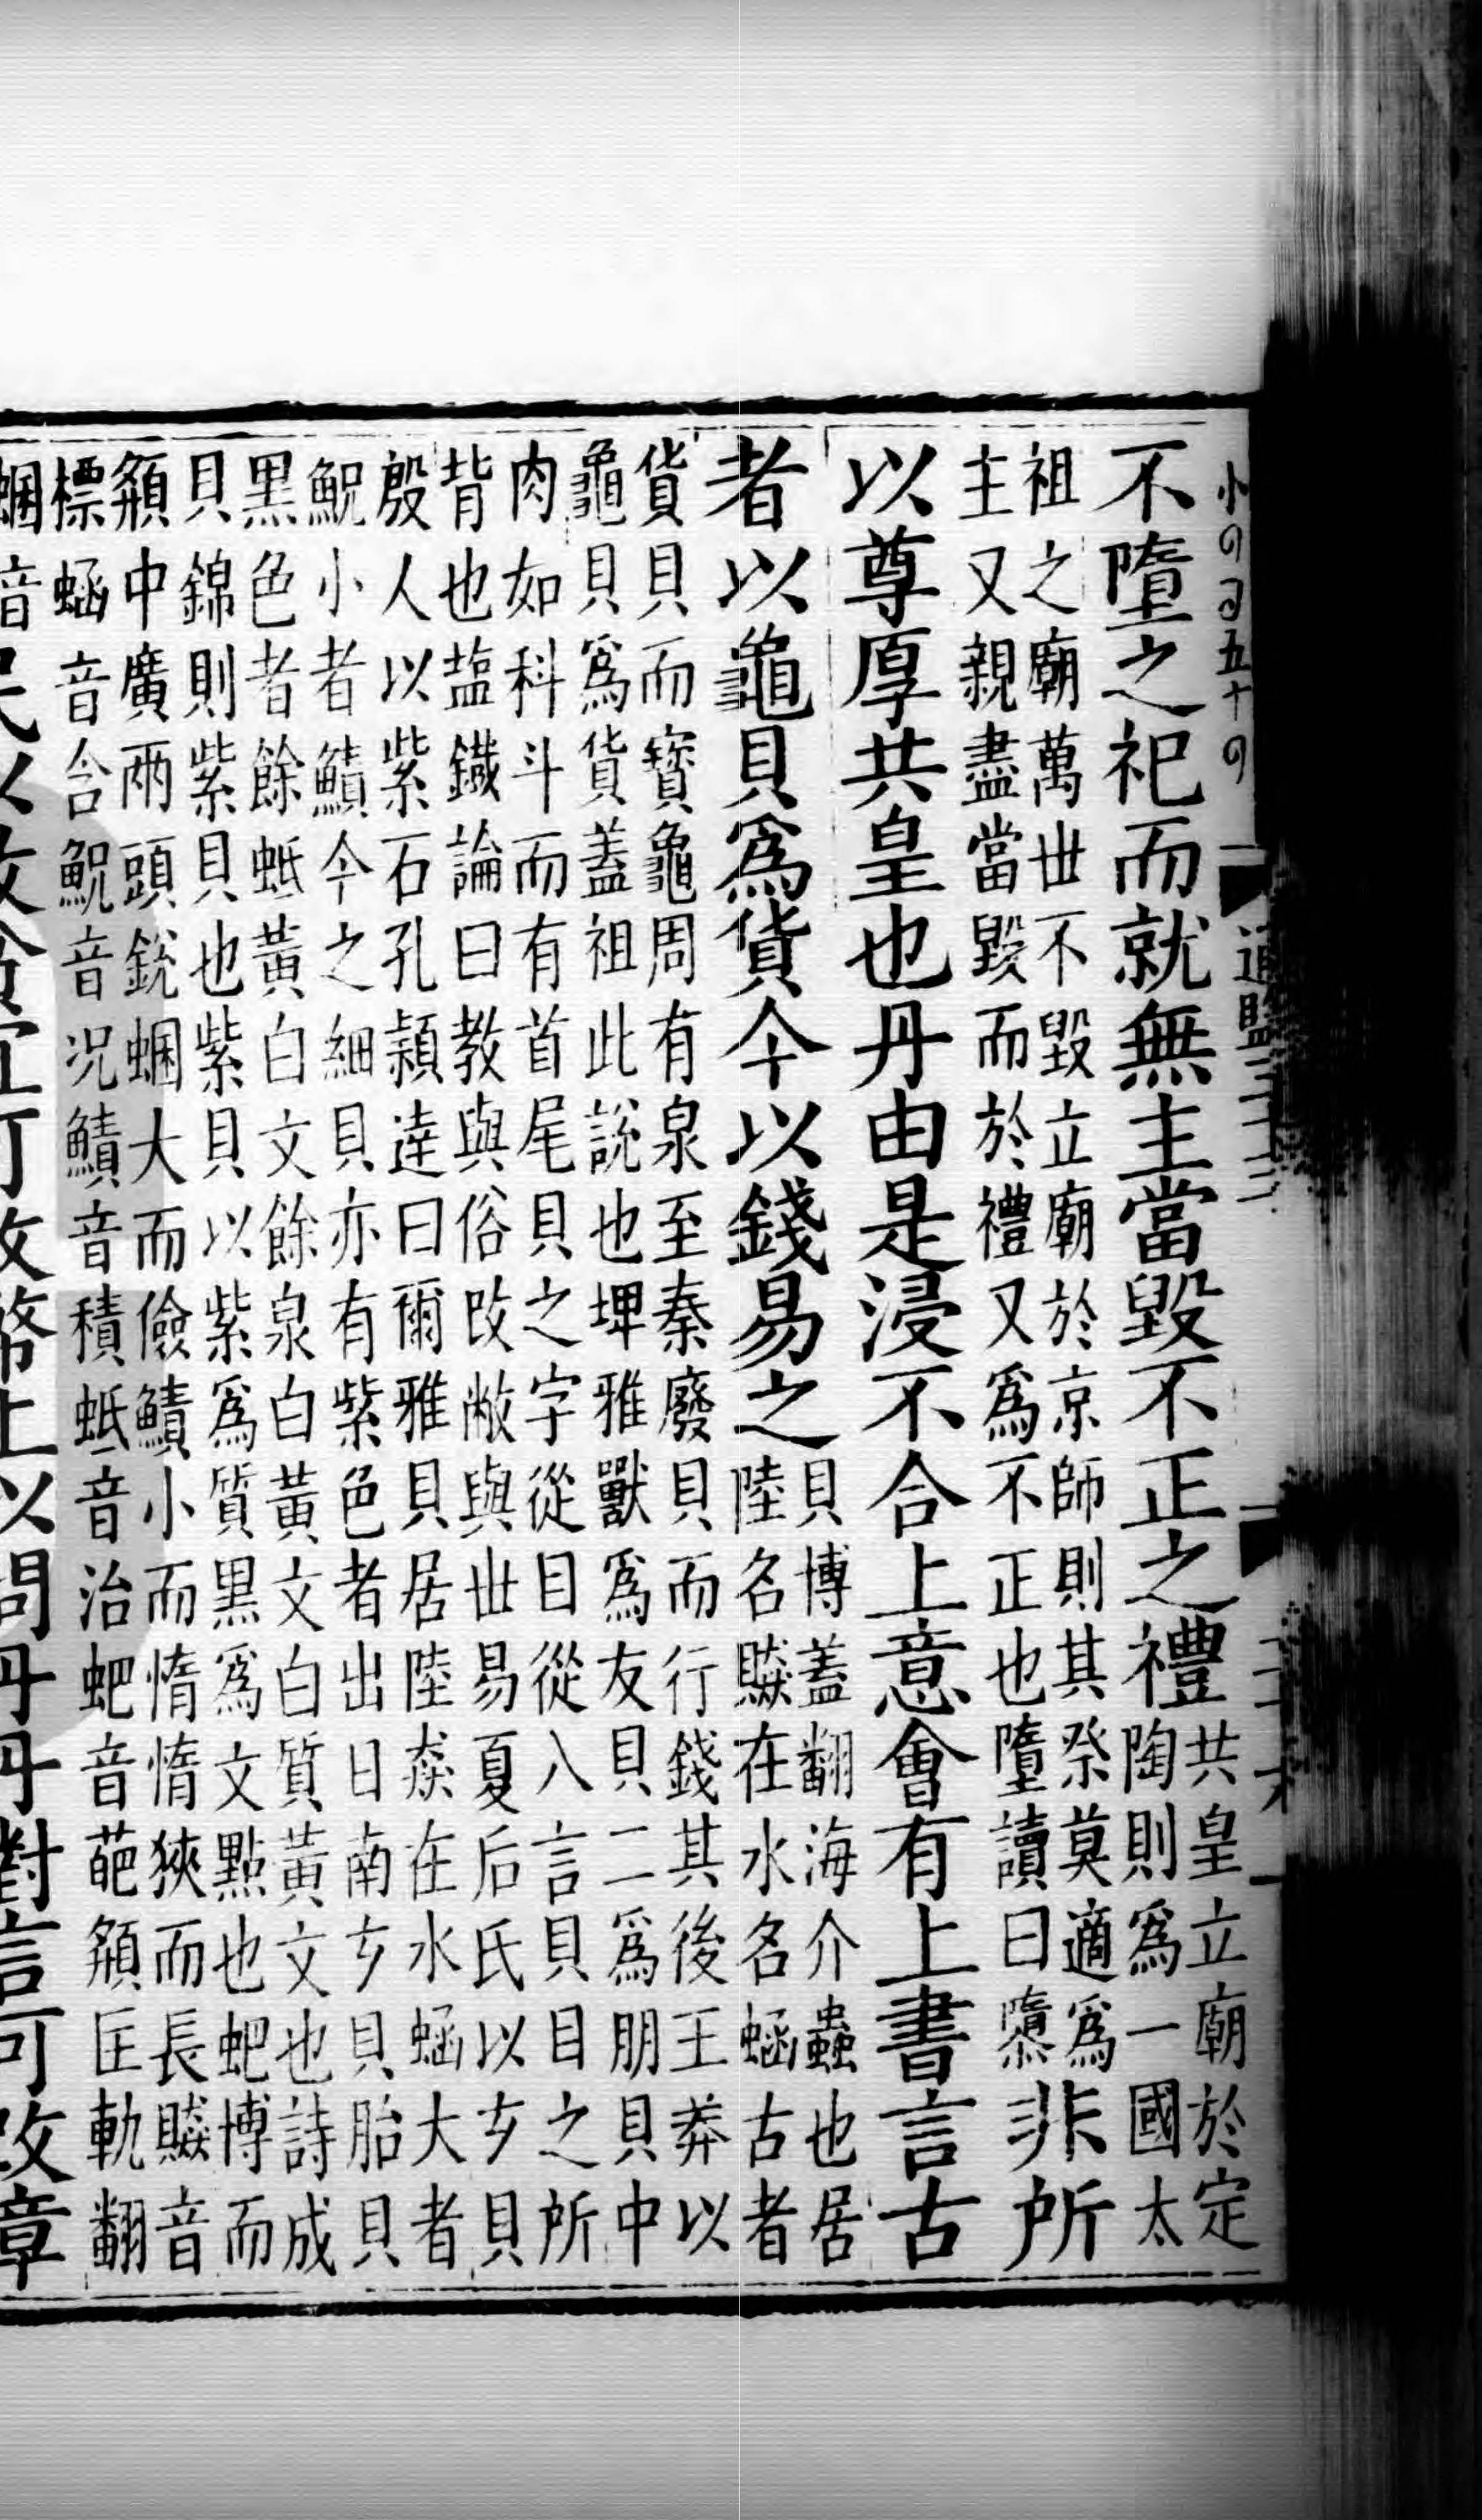 通鑑三十三
不墮之祀而就無主當毀不正之禮
共皇立廟於定
陶則爲一國太
祖之廟萬世不毀立廟於京師則其祭莫適爲
主又親盡當毀而於禮又爲不正也墮讀曰隳
非所
以尊厚共皇也丹由是浸不合上意會有上書言古
者以龜貝爲貨今以錢易之
貝博蓋翻海介蟲也居
陸名贆在水名蜬古者
貨貝而寳龜周有泉至秦廢貝而行錢其後王莽以
龜貝爲貨蓋祖此說也埤雅獸爲友貝二爲朋貝中
肉如科斗而有首尾貝之字從目從八言貝目之所
背也塩鐵論曰教與俗改敝與世易夏后氏以玄貝
殷人以紫石孔頴達曰爾雅貝居陸猋在水蜬大者
鱼兄小者鰿今之細貝亦有紫色者出日南玄貝胎貝
黑色者餘蚳黃白文餘泉白黃文白質黃文也詩成
貝錦則紫貝也紫貝以紫爲質黑爲文點也蚆博而
頯中廣兩頭銳蜠大而儉鰿小而惰惰狹而長贆音
標蜬音含鱼兄音况鰿音積蚳音治蚆音葩頯匡軌翻
蜠音
民以故貧宜可改幣上以問丹丹對言可改章